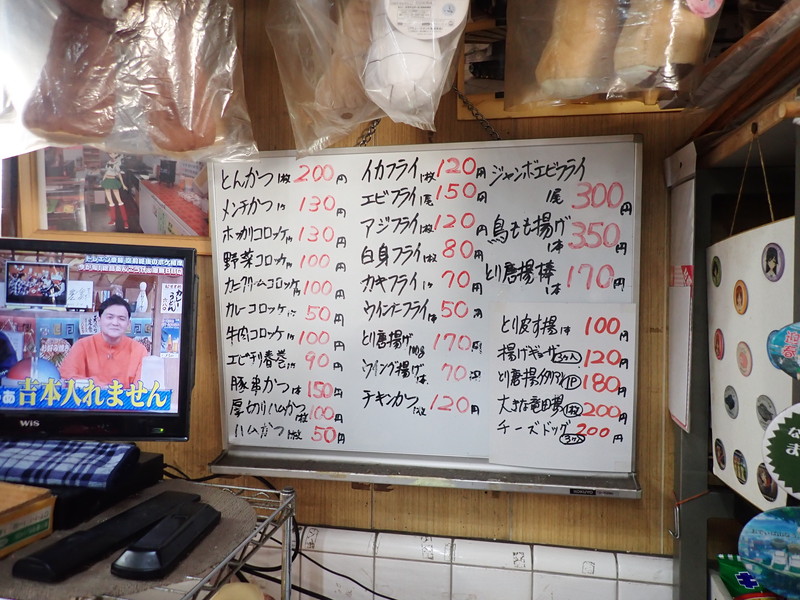 とんかつ1枚 200円
メンチかつ1ケ 130円
ホッカリコロッケ1ケ 130円
野菜コロッケ1ケ 100円
カニクリームコロッケ1ケ 100円
カレーコロッケ1ケ 50円
牛肉コロッケ1ケ 100円
エビチリ春巻1ケ 90円
豚串かつ1本 150円
厚切りハムかつ1枚 100円
ハムかつ1枚 50円
イカフライ1枚 120円
エビフライ1尾 150円
アジフライ1枚 120円
白身フライ1枚 80円
カキフライ1ケ 70円
ウインナーフライ1本 50円
とり唐揚げ 170円
ウイング揚げ1本 70円
チキンかつ1枚 120円
ジャンボエビフライ
1尾 300円
鳥もも揚げ
1本 350円
とり唐揚棒
1本 170円
とり皮す揚1本 100円
揚げギョーザ3ケ入 120円
とり唐揚 1P 180円
大きな竜田揚1枚 200円
チーズドッグ3ケ入 200円
吉本入れません
WiS